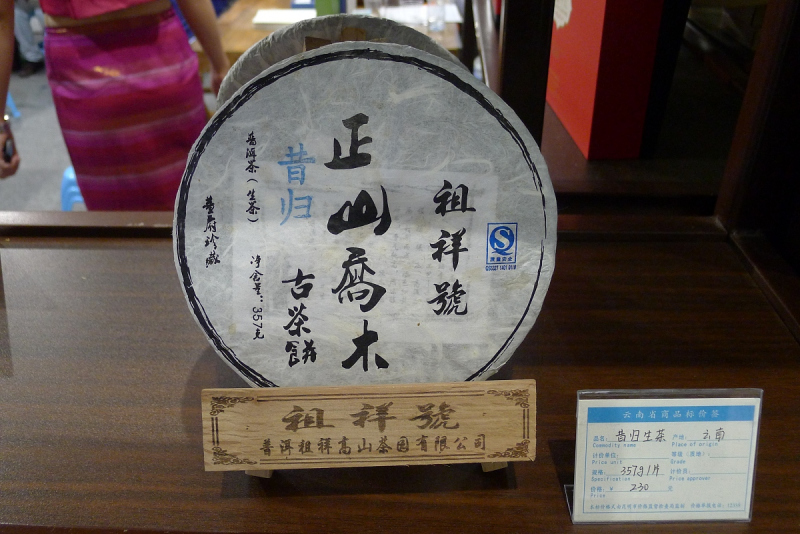 祖祥號
正山喬木
古茶餅
昔归
普洱茶（生茶）
净含量：357克
祖祥號
普洱祖祥高山茶园有限公司
云南省商品标价签
品名： 昔归生茶 产地： 云南
Commodity name Place of origin
计价单位：
Price unit Grade
规格： 357g1片 计价员：
Specification Price approver
价格：￥ 230 元
Price